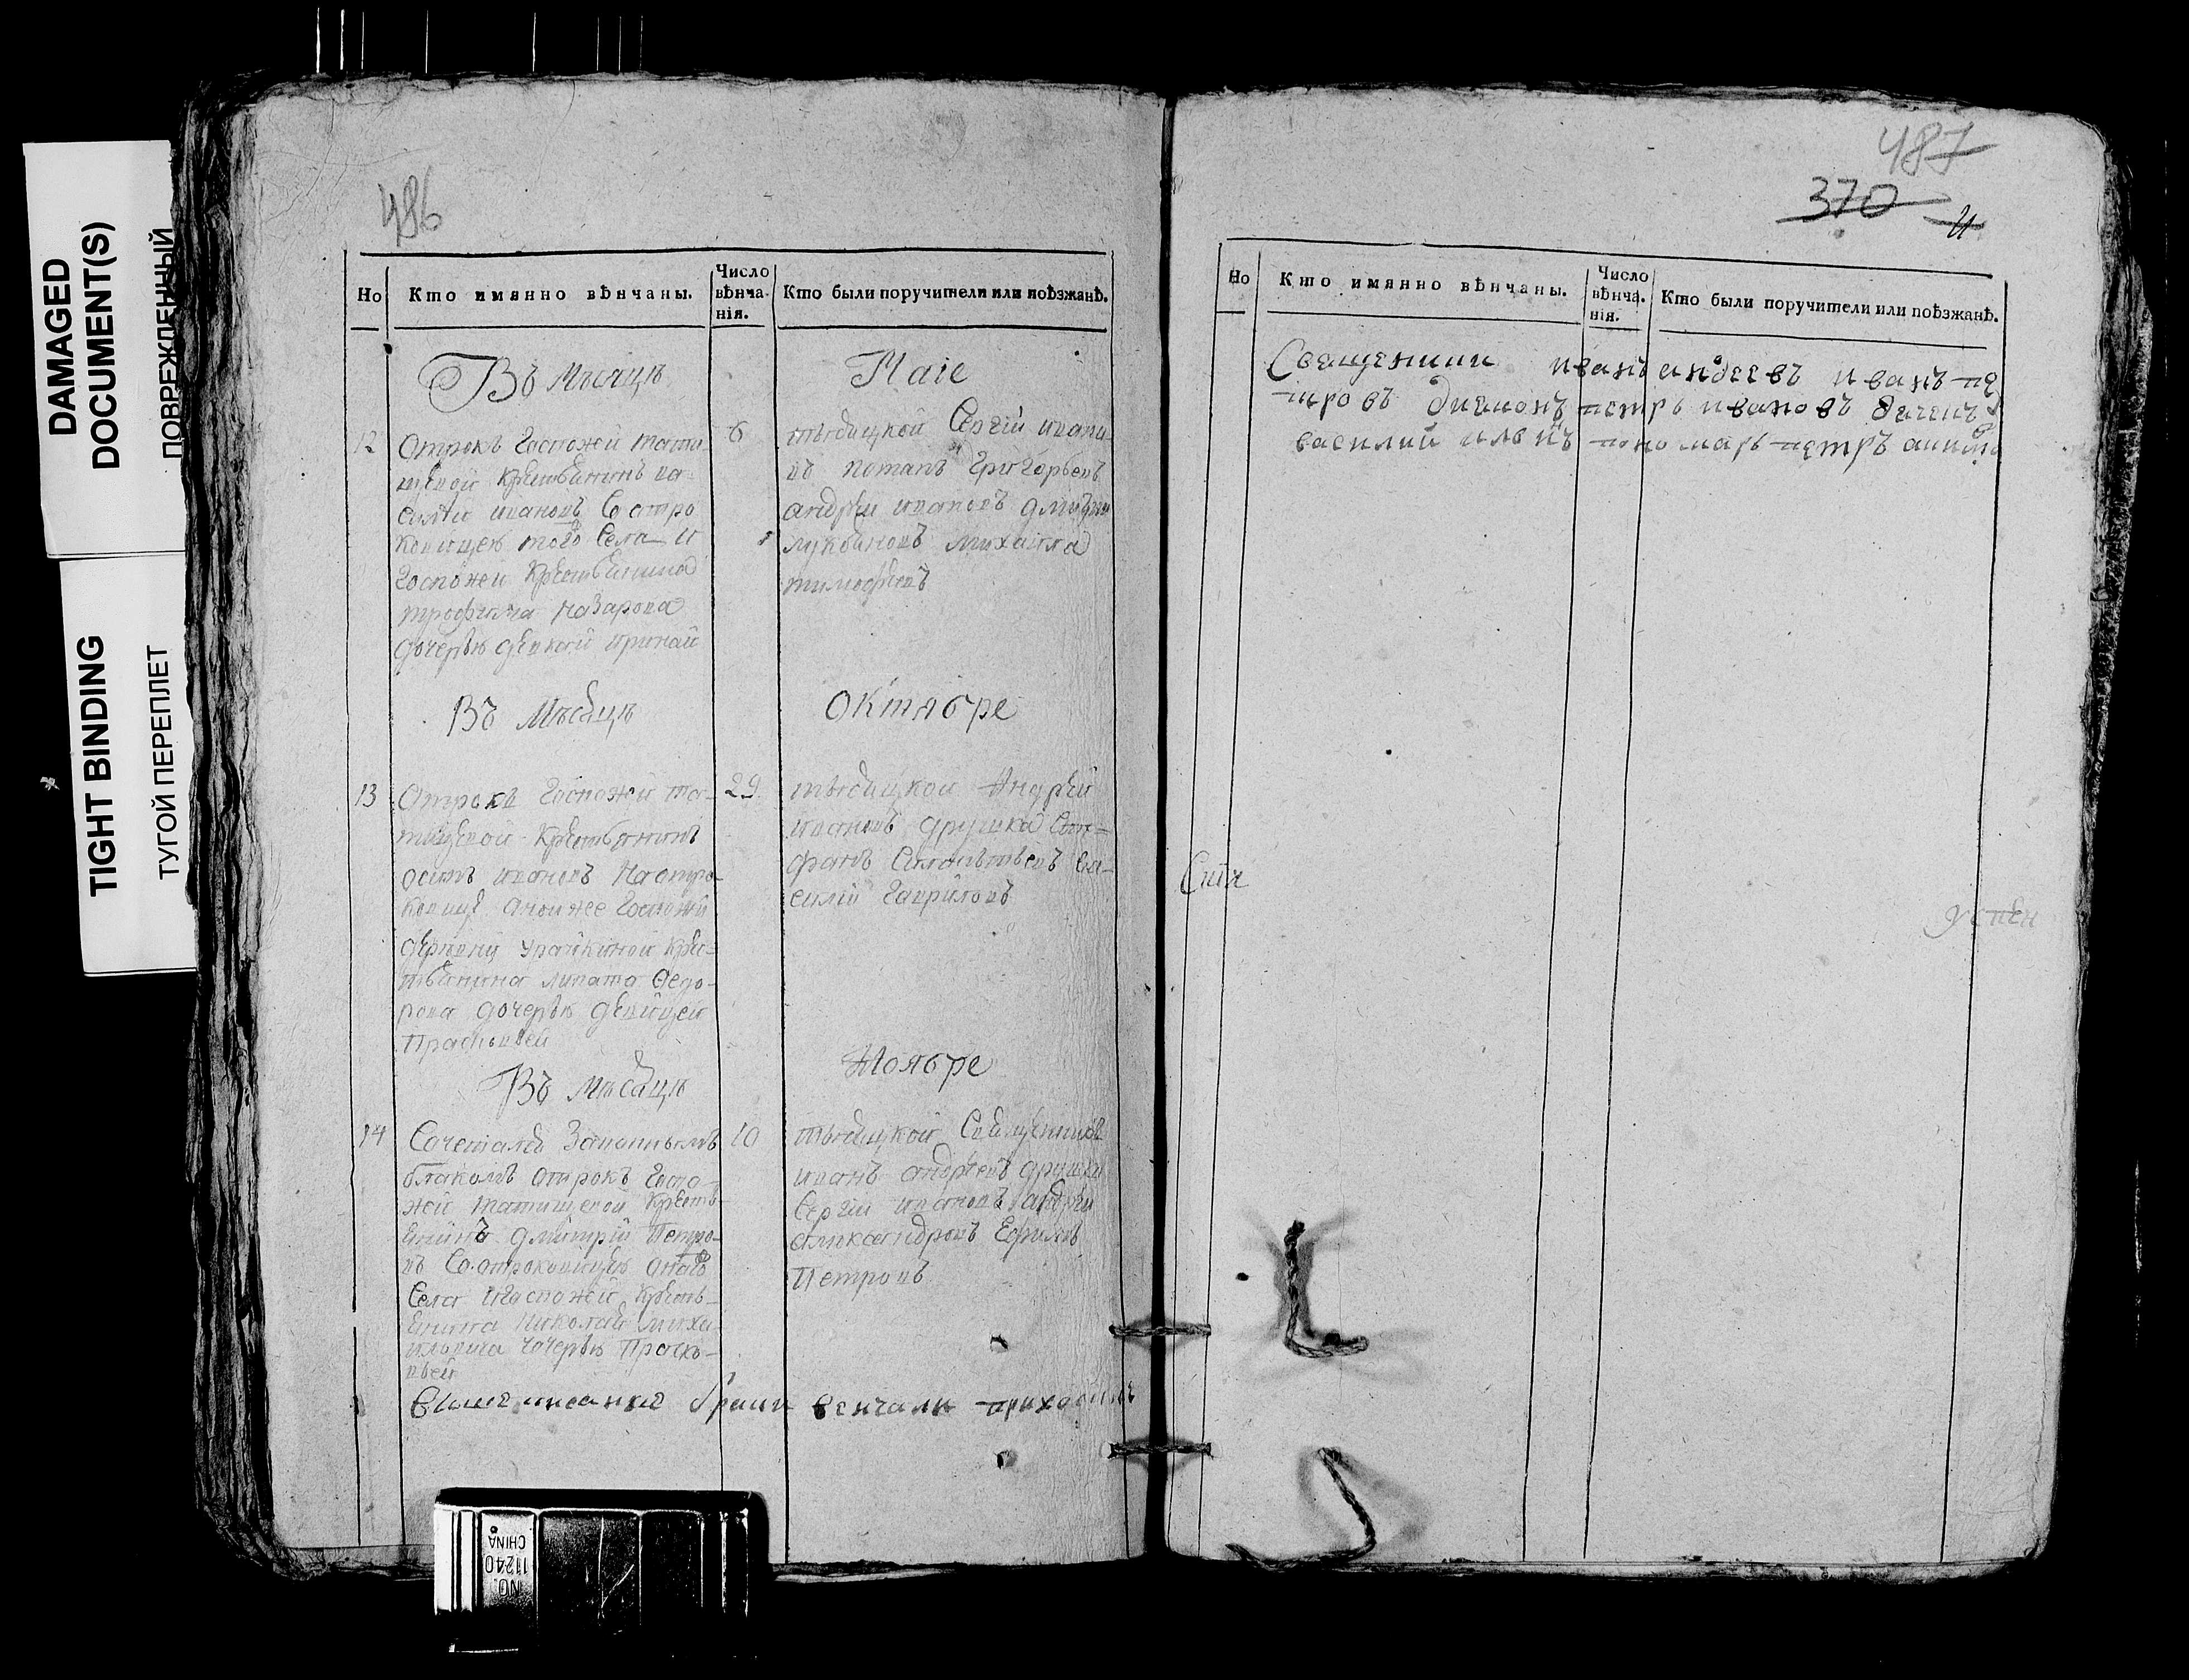 DAMAGED
DOCUMENT(S)
ПОВРЕЖДЕННЫЙ
TIGHT BINDING
ТУГОЙ ПЕРЕПЛЕТ
486
Но
Кто имянно вѣнчаны.
Число вѣнча-нія.
Кто были поручители или поѣзжанѣ.
Въ Мѣсяцѣ
Маіе
12
Отрокъ Госпожей тати-
щевой Крестьянинъ ва-
силій ивановъ Со отро
ковицею того Села и
Госпожеи Крестьянина
трофима назарова
дочерью девкой ириной
6
тысяцкой Сергій ивано-
въ потапъ Григорьевъ
андрей ивановъ дмитри
лукьяновъ михаила
тимофеевъ
Въ Мѣсяцѣ
Октябре
13
Отрокъ Госпожей та-
тищевой Крестьянинъ
осипъ ивановъ На отро-
ковице аноиже Госпожи
деревни урайкиной Кре-
стьянина липата Ѳедо-
рова дочерью девицей
Прасковьей
29
тысяцкой Андрей
ивановъ дружка Сте-
фанъ Силантьевъ ва-
силій Гавриловъ
Въ Мѣсяцѣ
Ноябре
14
Сочетался Законнымъ
бракомъ отрокъ Госпо-
жей татищевой Кресть-
янинъ дмитрій Петро-
въ Со отроковицею онаго
Села иГоспожей Кресть-
янина николая миха-
иловича дочерью Праско-
вьей
10
тысяцкой Священникъ
иванъ андреевъ дружки
Сергій ивановъ андрей
александровъ Ефимъ
Петровъ
вышеписанные браки венчали приходския
487
370
Но
Кто имянно вѣнчаны.
Число вѣнча-нія.
Кто были поручители или поѣзжанѣ.
Священники иванъ андеевъ иванъ пе
тровъ диаконъ петръ ивановъ дячекъ
василий ильинъ пономарь петръ
успен
NO.
11240
CHINA